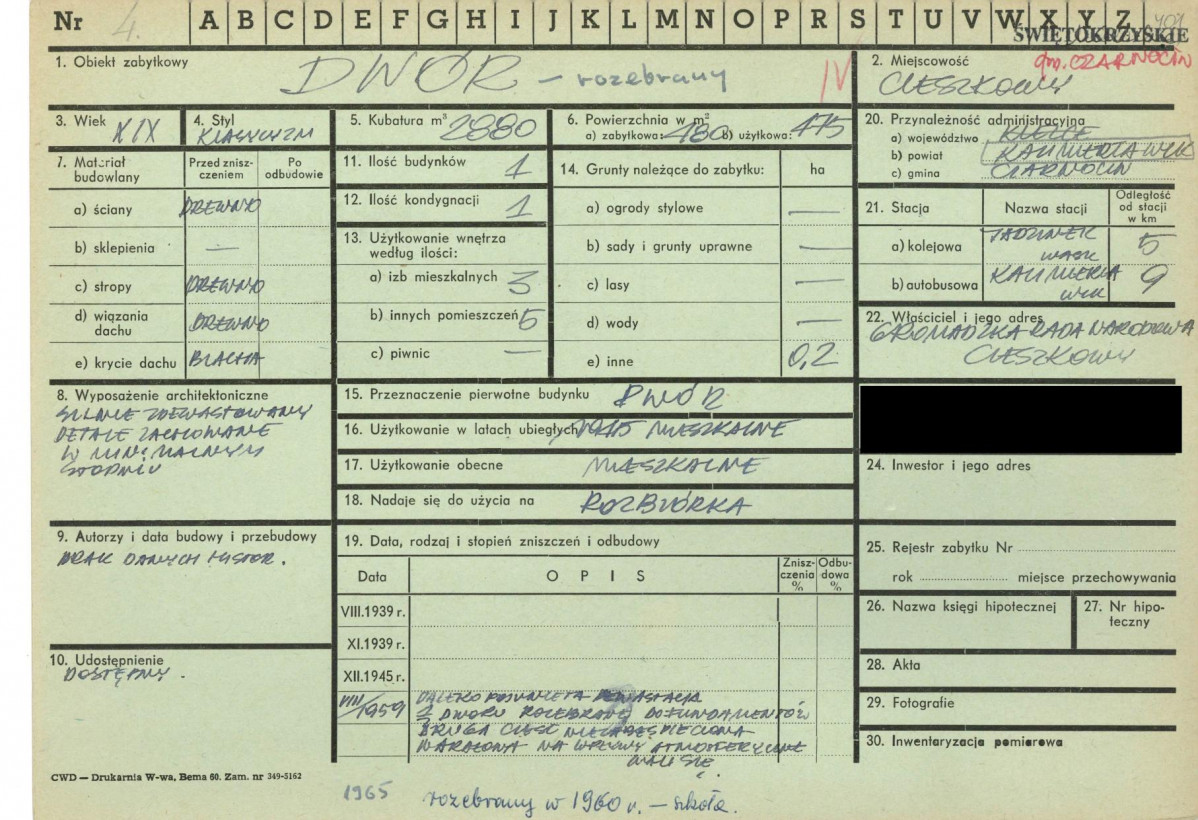 Nr 4. A B C D E F G H I J K L M N O P R S T U V W X Y Z 401
ŚWIĘTOKRZYSKIE
1. Obiekt zabytkowy
DWÓR – rozebrany IV
2. Miejscowość
gm. CZARNOCIN
CIESZKOWY
3. Wiek XIX
4. Styl
KLASYCYZM
5. Kubatura m³ 2880
6. Powierzchnia w m²
a) zabytkowa: 480 b) użytkowa: 475
20. Przynależność administracyjna
a) województwo KIELCE
b) powiat KAZIMIERZA WLK
c) gmina CZARNOCIN
7. Materiał budowlany
Przed znisz-
czeniem
Po
odbudowie
a) ściany DREWNO
b) sklepienia —
c) stropy DREWNO
d) wiązania
dachu DREWNO
e) krycie dachu BLACHA
11. Ilość budynków 1
12. Ilość kondygnacji 1
13. Użytkowanie wnętrza
według ilości:
a) izb mieszkalnych 3
b) innych pomieszczeń 5
c) piwnic —
14. Grunty należące do zabytku: ha
a) ogrody stylowe —
b) sady i grunty uprawne —
c) lasy —
d) wody —
e) inne 0,2
21. Stacja
Nazwa stacji
Odległość
od stacji
w km
a) kolejowa
WĄSK 5
b) autobusowa KAZIMIERZA
WLK 9
22. Właściciel i jego adres
GROMADZKA RADA NARODOWA
CIESZKOWY
8. Wyposażenie architektoniczne
SILNIE ZDEWASTOWANY
DETALE ZACHOWANE
W MINIMALNYM
STOPNIU
15. Przeznaczenie pierwotne budynku DWÓR
16. Użytkowanie w latach ubiegłych 1945 MIESZKALNE
17. Użytkowanie obecne MIESZKALNE
18. Nadaje się do użycia na ROZBIÓRKA
24. Inwestor i jego adres
9. Autorzy i data budowy i przebudowy
BRAK DANYCH HISTOR.
10. Udostępnienie
DOSTĘPNY.
19. Data, rodzaj i stopień zniszczeń i odbudowy
Data
OPIS
Znisz-
czenia
%
Odbu-
dowa
%
VIII.1939 r.
XI.1939 r.
XII.1945 r.
VIII/1959 DALEKO POSUNIĘTA DEWASTACJA
½ DWORU ROZEBRANO DO FUNDAMENTÓW
DRUGA CZĘŚĆ NIEZABEZPIECZONA
NARAŻONA NA WPŁYWY ATMOSFERYCZNE
WALI SIĘ.
25. Rejestr zabytku Nr
rok miejsce przechowywania
26. Nazwa księgi hipotecznej
27. Nr hipo-
teczny
28. Akta
29. Fotografie
30. Inwentaryzacja pomiarowa
CWD — Drukarnia W-wa, Bema 60. Zam. nr 349-5162
1965 rozebrany w 1960 r. – szkoła.